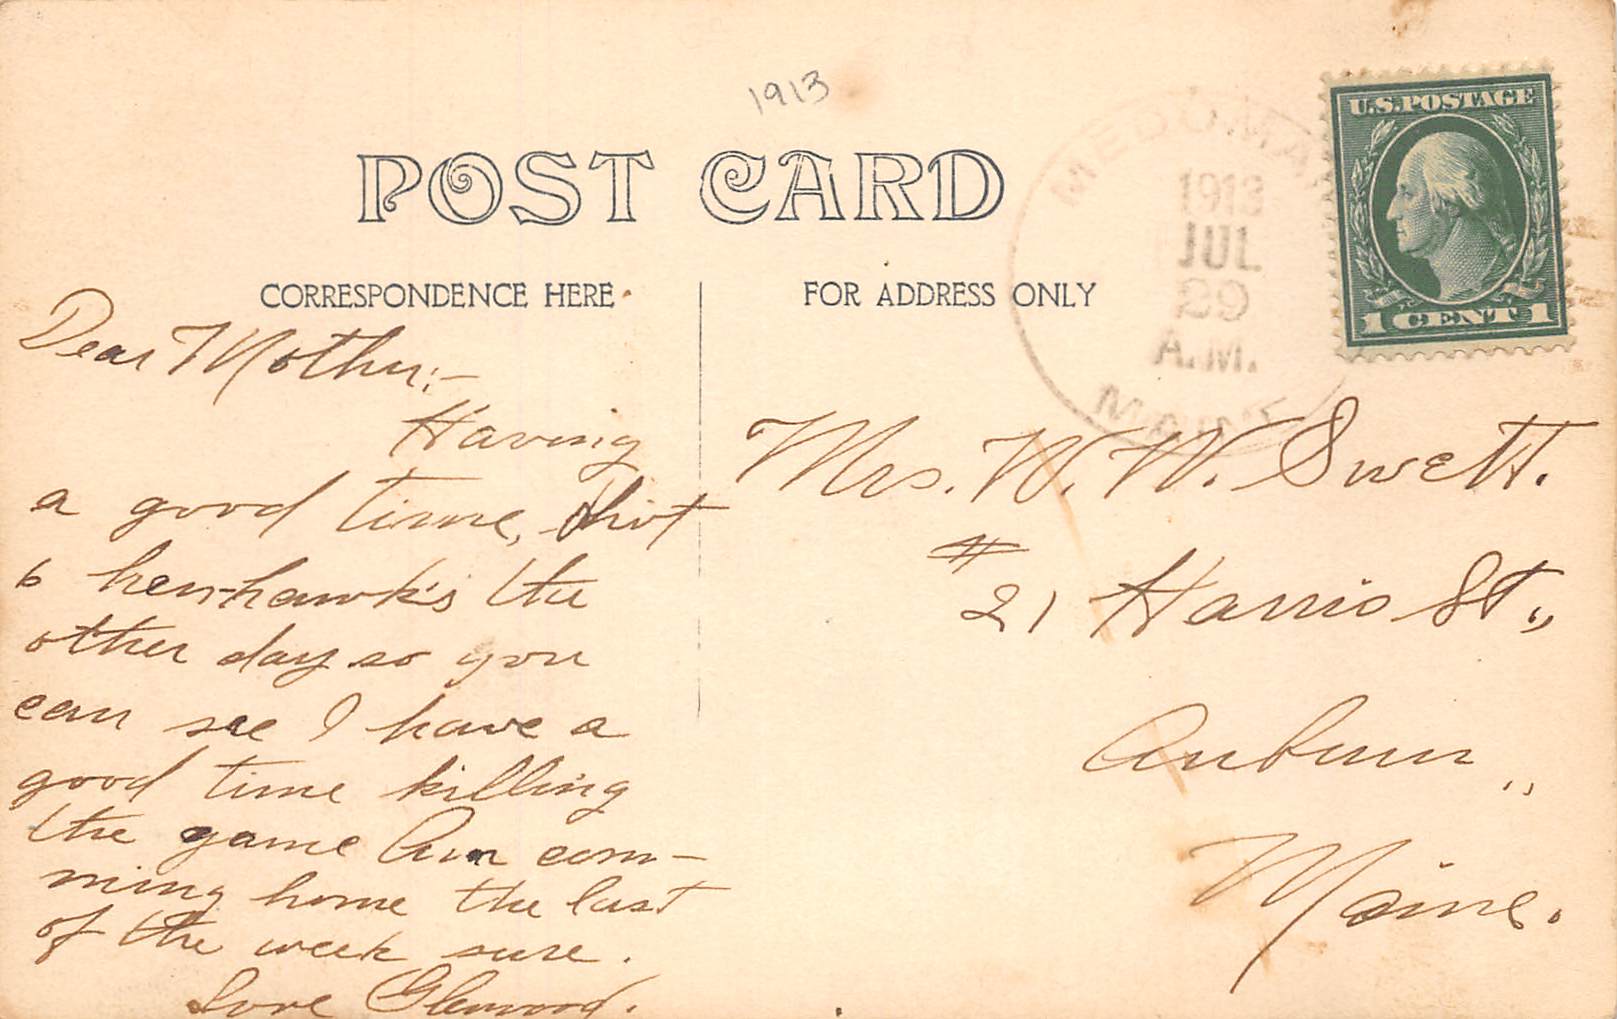 1913
POST CARD
CORRESPONDENCE HERE
FOR ADDRESS ONLY
MEDOMAK
1913
JUL
29
A.M.
MAINE
U.S. POSTAGE
1 CENT 1
Dear Mother:-
Having
a good time, shot
6 hen-hawk's the
other day so you
can see I have a
good time killing
the game Am com-
ming home the last
of the week sure.
Love Glenwood.
Mrs. W. W. Swett.
# 21 Harris St.,
Auburn,
Maine.